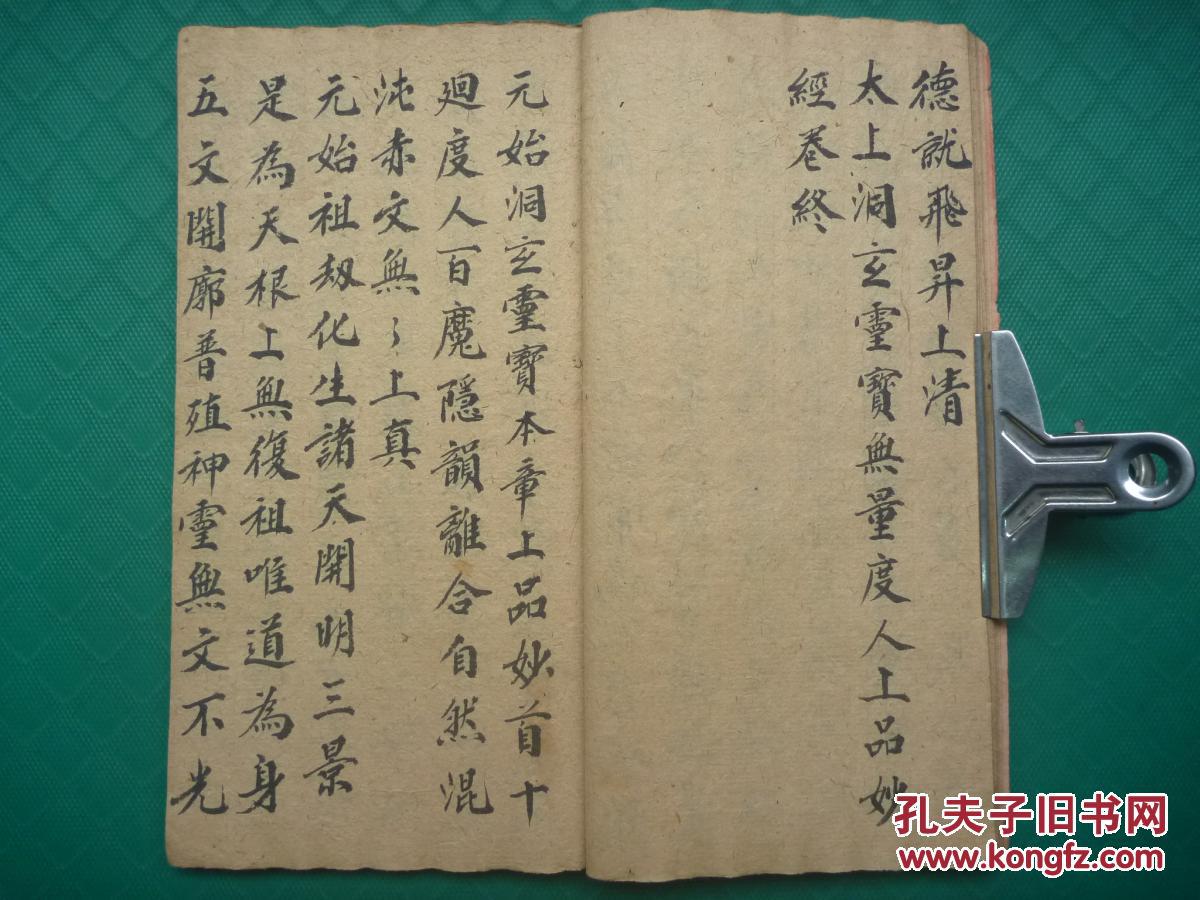 德就飛昇上清
太上洞玄靈寶無量度人上品妙
經卷終
元始洞玄靈寶本章上品妙首十
廻度人百魔隱韻離合自然混
沌赤文無〻上真
元始祖劫化生諸天開明三景
是為天根上無復祖唯道為身
五文開廓普殖神靈無文不光
孔夫子旧书网
www.kongfz.com